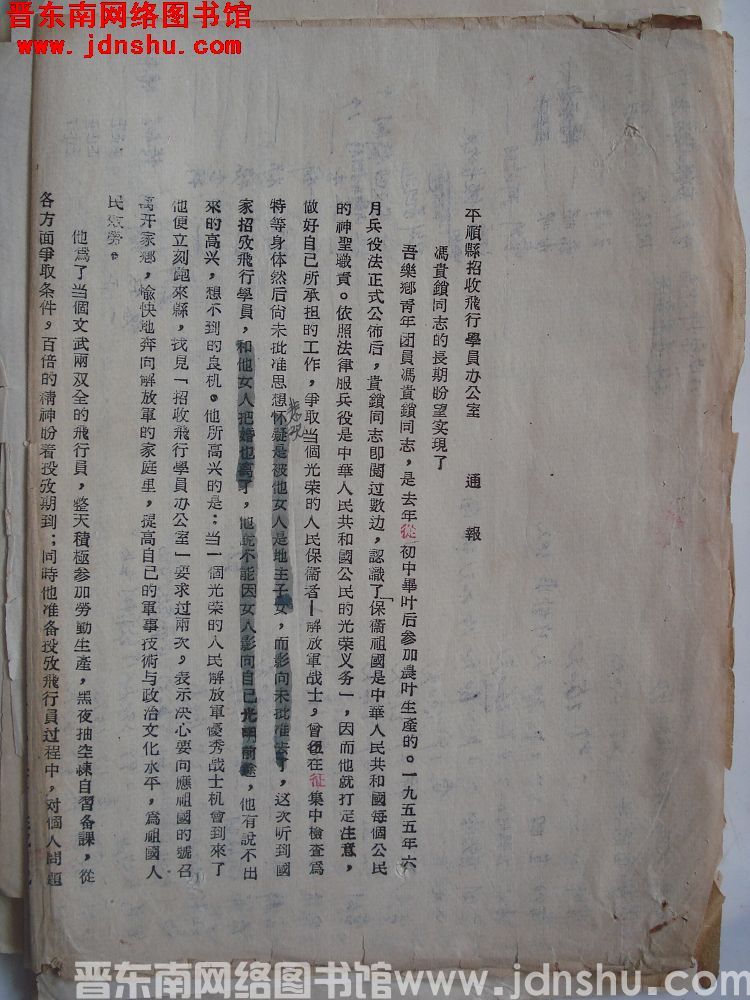 晋东南网络图书馆
www.jdnshu.com
平順縣招收飛行學員办公室 通報
馮貴鎖同志的長期盼望实現了
吾樂鄉青年团員馮貴鎖同志，是去年從初中畢叶后参加農叶生產的。一九五五年六
月兵役法正式公佈后，貴鎖同志即閱过數边，認識了「保衞祖國是中華人民共和國每個公民
的神聖職責。依照法律服兵役是中華人民共和國公民的光荣义务」，因而他就打定注意，
做好自己所承担的工作，爭取当個光荣的人民保衞者—解放軍战士，曾在征集中檢查爲
特等身体然后尙未批准思想怀疑是被他女人是地主子女，而影向未批准去了，这次听到國
家招收飛行學員，和他女人把婚也离了，他說不能因女人影向自己光明前途，他有說不出
來的高兴，想不到的良机。他所高兴的是：当一個光荣的人民解放軍優秀战士机會到來了
他便立刻跑來縣，找見「招收飛行學員办公室」要求过兩次，表示决心要向應祖國的號召
离开家鄉，愉快地奔向解放軍的家庭里，提高自己的軍事技術与政治文化水平，爲祖國人
民效勞。
他爲了当個文武兩双全的飛行員，整天積極参加勞動生產，黑夜抽空練自習备課，從
各方面爭取条件，百倍的精神盼着投攷期到；同時他准备投攷飛行員过程中，对個人問題
晋东南网络图书馆www.jdnshu.com